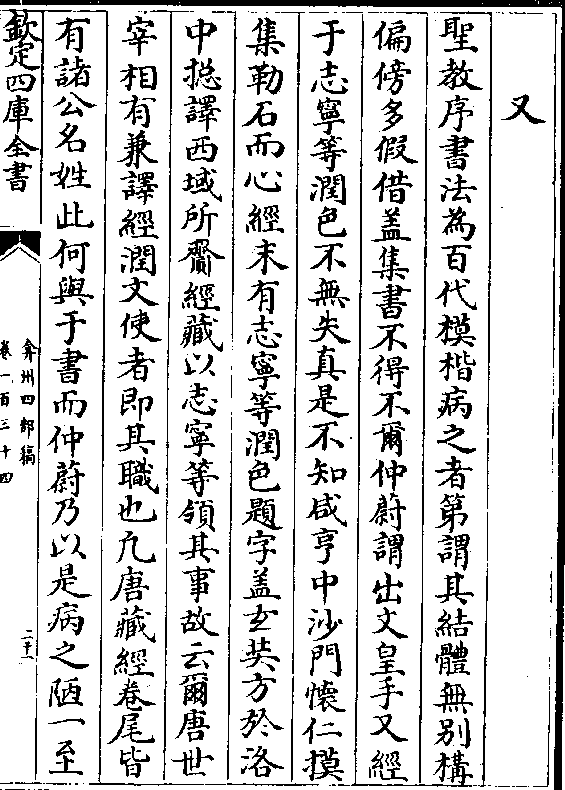 又
聖教序書法為百代模楷病之者第謂其結體無別構
偏傍多假借盖集書不得不爾仲蔚謂出文皇手又經
于志寧等潤色不無失真是不知咸亨中沙門懷仁摸
集勒石而心經末有志寧等潤色題字盖玄奘方於洛
中捴譯西域所齎經藏以志寧等領其事故云爾唐世
宰相有兼譯經潤文使者即其職也凡唐藏經卷尾皆
有諸公名姓此何與于書而仲蔚乃以是病之陋一至
欽定四庫全書
弇州四部稿
卷一百三十四